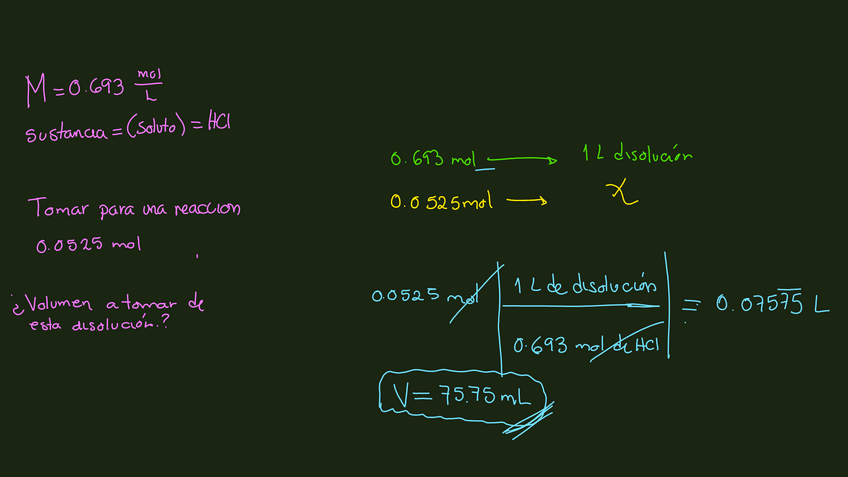 M = 0.693 mol/L
sustancia = (soluto) = HCl
Tomar para una reaccion
0.0525 mol
¿Volumen a tomar de
esta disolución.?
0.693 mol → 1 L disolución
0.0525 mol → X
0.0525 mol | 1 L de disolución / 0.693 mol de HCl | = 0.07575 L
V = 75.75 mL